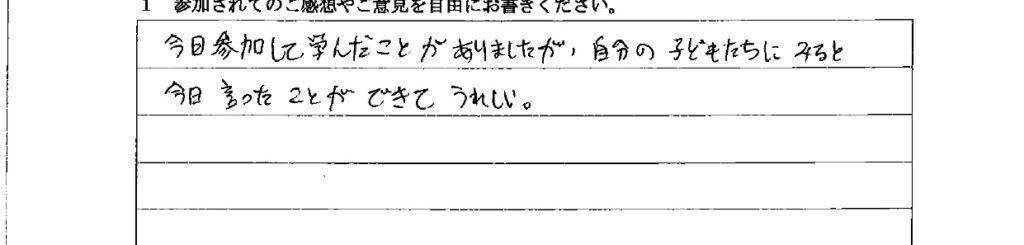 1 参加されてのご感想やご意見を自由にお書きください。
今日参加して学んだことがありましたが、自分の子どもたちにみると
今日言ったことができてうれしい。